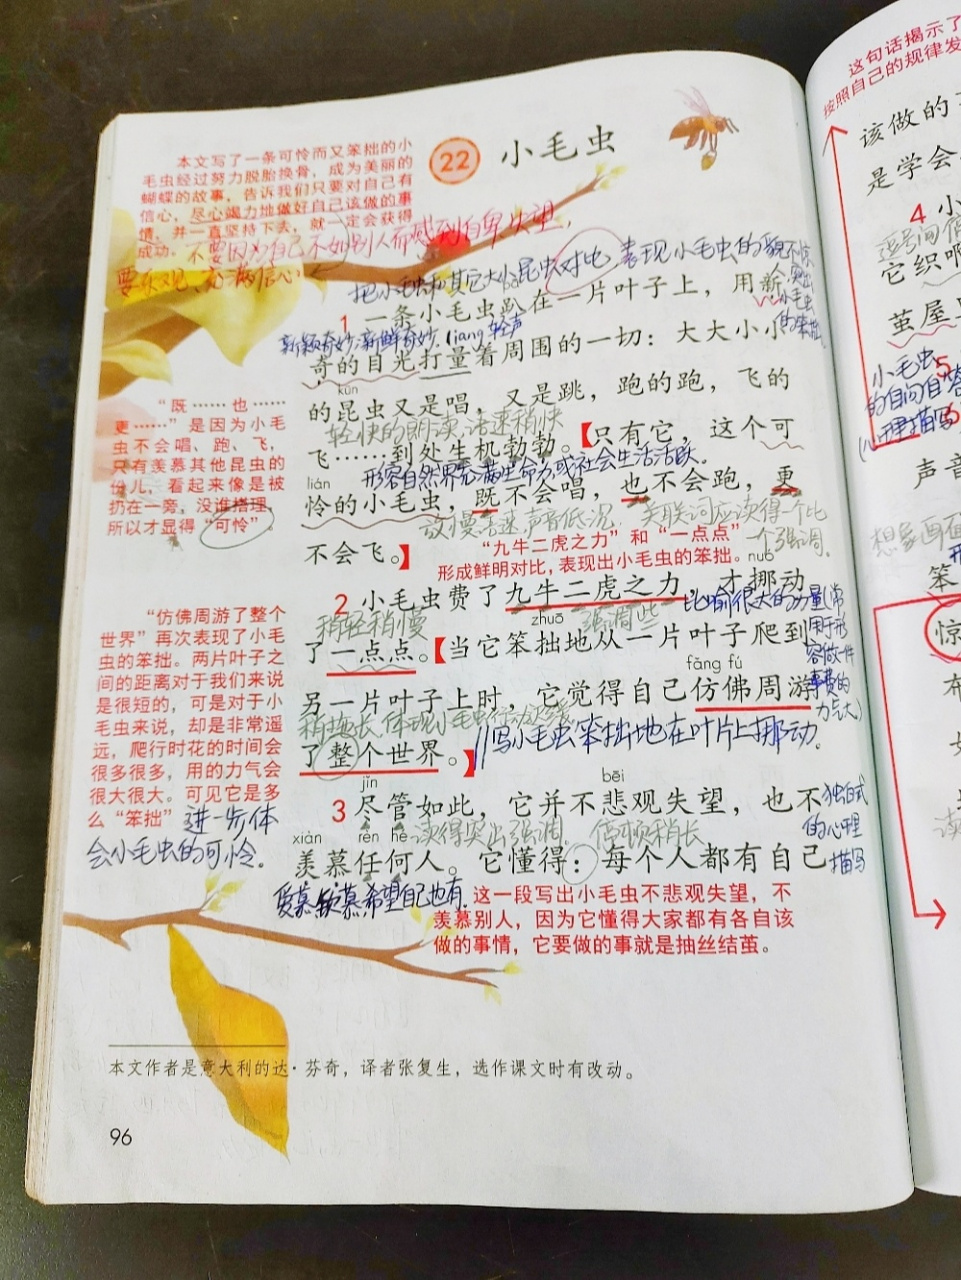 22 小毛虫
本文写了一条可怜而又笨拙的小
毛虫经过努力脱胎换骨，成为美丽的
蝴蝶的故事，告诉我们只要对自己有
信心，尽心竭力地做好自己该做的事
情，并一直坚持下去，就一定会获得
成功。
不要因为自己不如别人而感到自卑失望，
要乐观、充满信心
把小毛虫和其它大小昆虫对比，表现小毛虫的
1 一条小毛虫趴在一片叶子上，用新
新颖奇妙.新鲜奇妙. liang 轻声
奇的目光打量着周围的一切：大大小小
kūn
的昆虫又是唱，又是跳，跑的跑，飞的
轻快的朗读,语速稍快
飞……到处生机勃勃。【只有它，这个可
形容自然界充满生命力或社会生活活跃.
lián
怜的小毛虫，既不会唱，也不会跑，更
放慢语速 声音低沉. 关联词应读得一个比
一个强调.
不会飞。】
“既……也……
更……”是因为小毛
虫不会唱、跑、飞，
只有羡慕其他昆虫的
份儿，看起来像是被
扔在一旁，没谁搭理，
所以才显得“可怜”
“九牛二虎之力”和“一点点”
形成鲜明对比，表现出小毛虫的笨拙。
nuó
2 小毛虫费了九牛二虎之力，才挪动
稍轻稍慢
zhuō
强调些
比喻很大的力量(常
用于形
容做一件
事费的
力气大)
了一点点。【当它笨拙地从一片叶子爬到
fǎng fú
另一片叶子上时，它觉得自己仿佛周游
了整个世界。】
写小毛虫笨拙地在叶片上挪动.
“仿佛周游了整个
世界”再次表现了小毛
虫的笨拙。两片叶子之
间的距离对于我们来说
是很短的，可是对于小
毛虫来说，却是非常遥
远，爬行时花的时间会
很多很多，用的力气会
很大很大。可见它是多
么“笨拙”
进一步体
会小毛虫的可怜.
jǐn
bēi
3 尽管如此，它并不悲观失望，也不
xiàn rèn hé
读得突出强调. 停顿稍长
羡慕任何人。它懂得：每个人都有自己
独白式
的心理
描写
希望自己也有.
这一段写出小毛虫不悲观失望，不
羡慕别人，因为它懂得大家都有各自该
做的事情，它要做的事就是抽丝结茧。
本文作者是意大利的达·芬奇，译者张复生，选作课文时有改动。
96
这句话揭示了
按照自己的规律发
该做的
是学会
4 小
它织啊
茧屋
小毛虫
的自问自答
心理描写
5
6
声音
想象画面
笨
惊
布